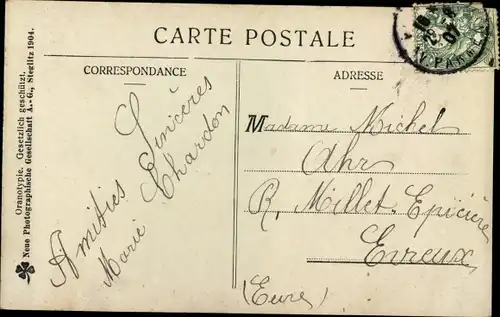 CARTE POSTALE
CORRESPONDANCE
ADRESSE
Amitiés Sincères
Marie Chardon
Madame Michel
R. Millet. Epicière
Evreux
(Eure)
Oranotypie. Gesetzlich geschützt.
Neue Photographische Gesellschaft A.-G., Steglitz 1904.